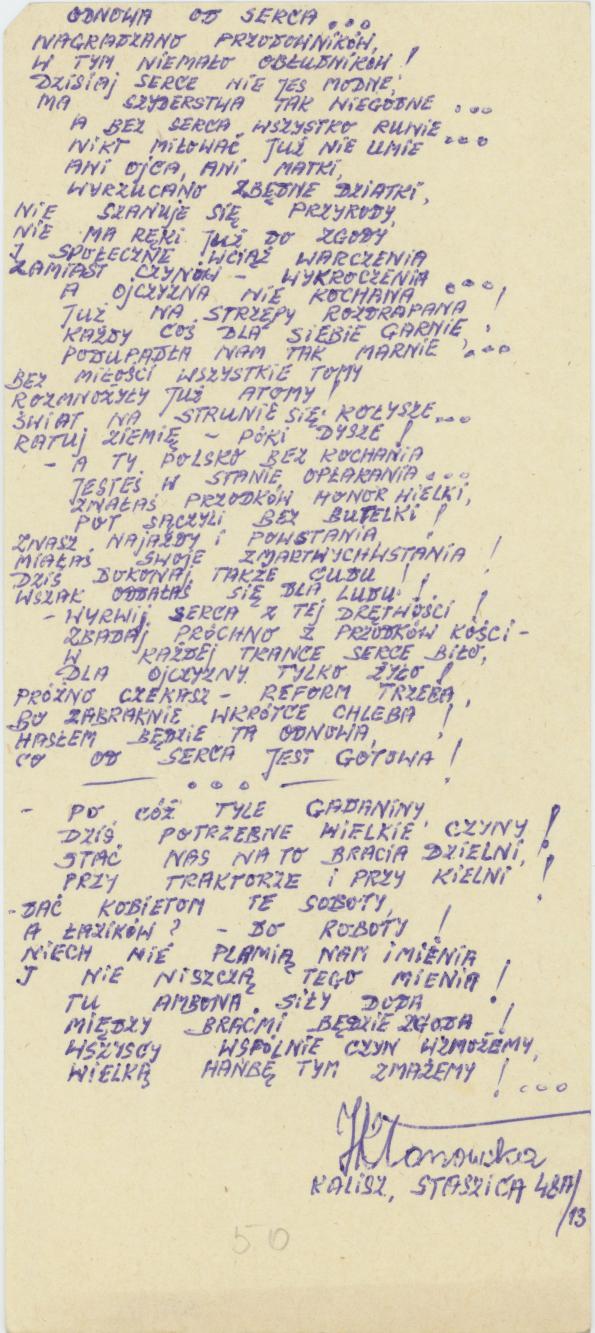 ODNOWA OD SERCA...
NAGRADZANO PRZODOWNIKÓW,
W TYM NIEMAŁO OBŁUDNIKÓW!
DZISIAJ SERCE NIE JES MODNE,
MA SZYDERSTWA TAK NIEGODNE...
A BEZ SERCA WSZYSTKO RUNIE
NIKT MIŁOWAĆ JUŻ NIE UMIE...
ANI OJCA, ANI MATKI,
WYRZUCANO ZBĘDNE DZIATKI,
NIE SZANUJE SIĘ PRZYRODY,
NIE MA RĘKI JUŻ DO ZGODY
I SPOŁECZNE WCIĄŻ WARCZENIA
ZAMIAST CZYNÓW - WYKROCZENIA
A OJCZYZNA NIE KOCHANA...,
JUŻ NA STRZĘPY ROZDRAPANA!
KAŻDY COŚ DLA SIEBIE GARNIE,
PODUPADŁA NAM TAK MARNIE,...
BEZ MIŁOŚCI WSZYSTKIE TOMY
ROZMNOŻYŁY JUŻ ATOMY!
ŚWIAT NA STRUNIE SIĘ KOŁYSZE...
RATUJ ZIEMIĘ - PÓKI DYSZE!
- A TY POLSKO BEZ KOCHANIA
JESTEŚ W STANIE OPŁAKANIA...
ZNAŁAŚ PRZODKÓW HONOR WIELKI,
POT SĄCZYLI BEZ BUTELKI!
ZNASZ NAJAZDY I POWSTANIA,
MIAŁAŚ SWOJE ZMARTWYCHWSTANIA!
DZIŚ DOKONAJ TAKŻE CUDU!
WSZAK ODDAŁAŚ SIĘ DLA LUDU!
- WYRWIJ SERCA Z TEJ DRĘTWOŚCI!
ZBADAJ PRÓCHNO Z PRZODKÓW KOŚCI -
W KAŻDEJ TKANCE SERCE BIŁO,
DLA OJCZYZNY TYLKO ŻYŁO!
PRÓŻNO CZEKASZ - REFORM TRZEBA,
BO ZABRAKNIE WKRÓTCE CHLEBA!
HASŁEM BĘDZIE TA ODNOWA,
CO OD SERCA JEST GOTOWA!
— ... —
- PO CÓŻ TYLE GADANINY,
DZIŚ POTRZEBNE WIELKIE CZYNY!
STAĆ NAS NA TO BRACIA DZIELNI,
PRZY TRAKTORZE I PRZY KIELNI!
- DAĆ KOBIETOM TE SOBOTY,
A ŁAZIKÓW? - DO ROBOTY!
NIECH NIE PLAMIĄ NAM IMIENIA
I NIE NISZCZĄ TEGO MIENIA!
TU AMBONA SIŁY DODA
MIĘDZY BRAĆMI BĘDZIE ZGODA!
WSZYSCY WSPÓLNIE CZYN WZMOŻEMY,
WIELKĄ HAŃBĘ TYM ZMAŻEMY!...
KALISZ, STASZICA 48A/13
50